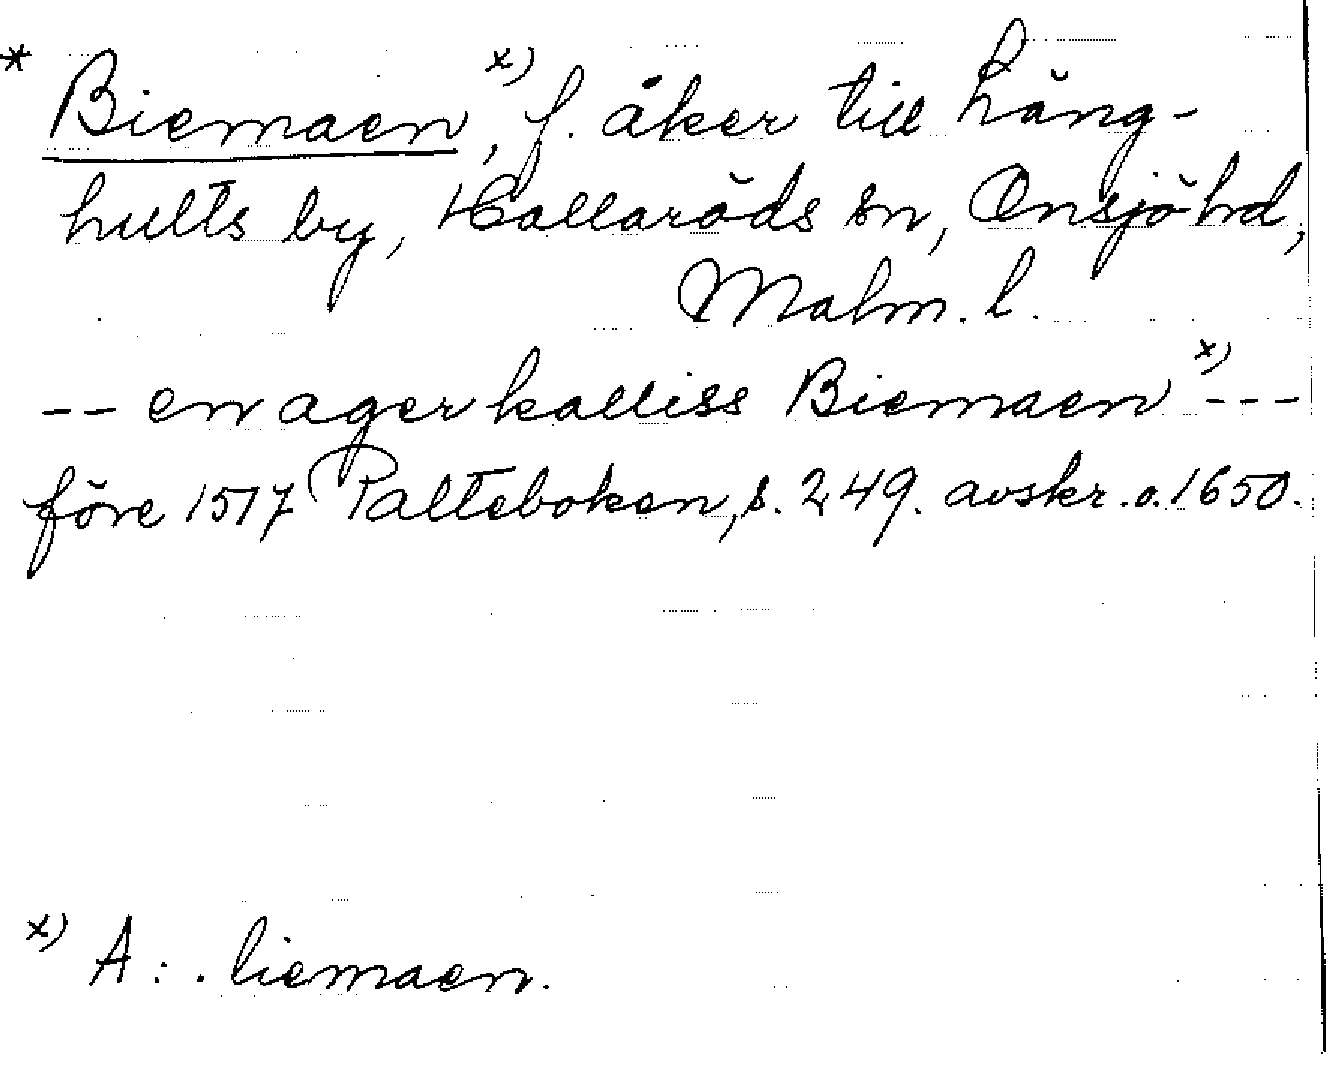 * Biemaen x), f. åker till Lång-
hults by, Hallaröds sn, Onsjö hd,
Malm. l.
-- en ager kalliss Biemaen x) ---
före 1517 Palteboken, s. 249. avskr. o. 1650.
x) A: . liemaen.